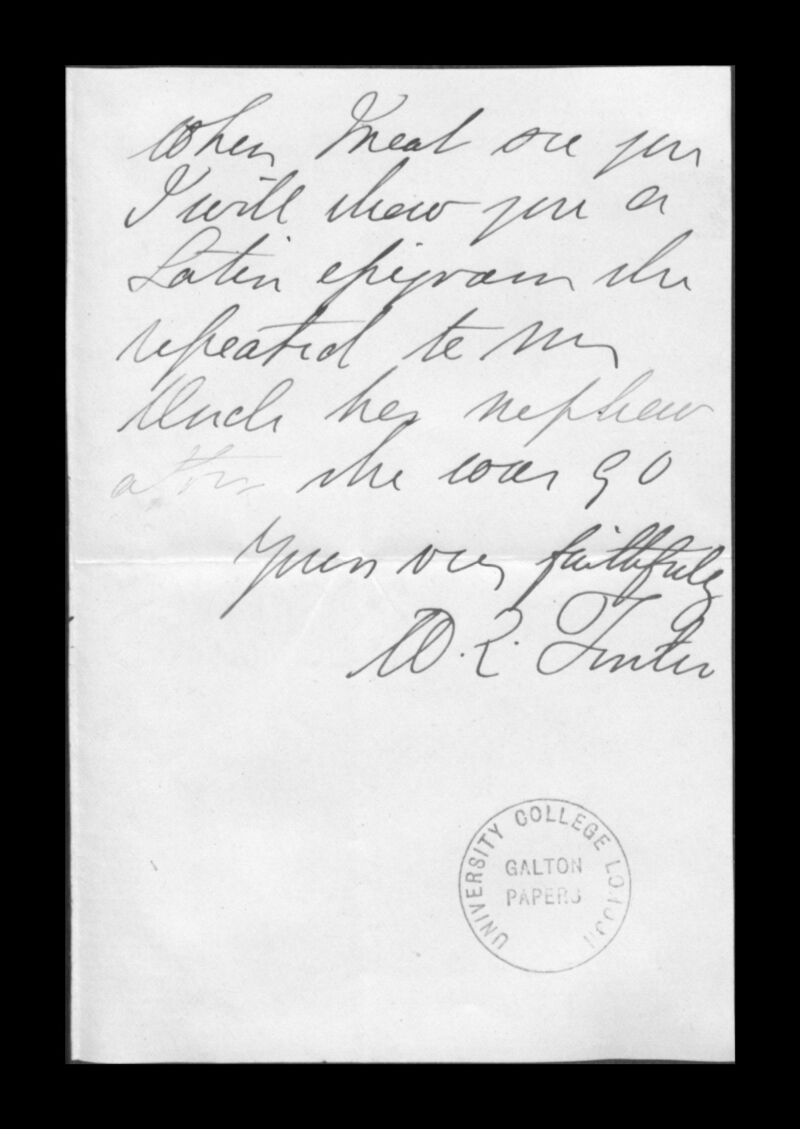 When I next see you
I will shew you a
Latin epigram she
repeated to my
Uncle her nephew
after she was 90
Yours very faithfully
W. R.
UNIVERSITY COLLEGE LONDON
GALTON
PAPERS